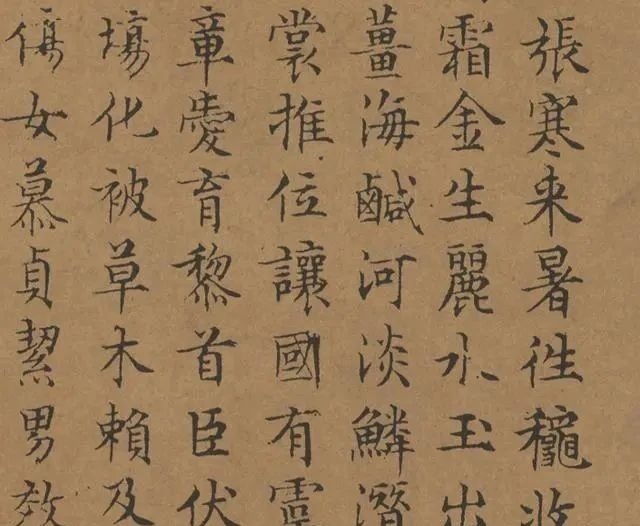 張寒来暑往穐收
霜金生麗水玉出
薑海鹹河淡鱗潛
裳推位讓國有虞
章愛育黎首臣伏
場化被草木賴及
傷女慕貞絜男效